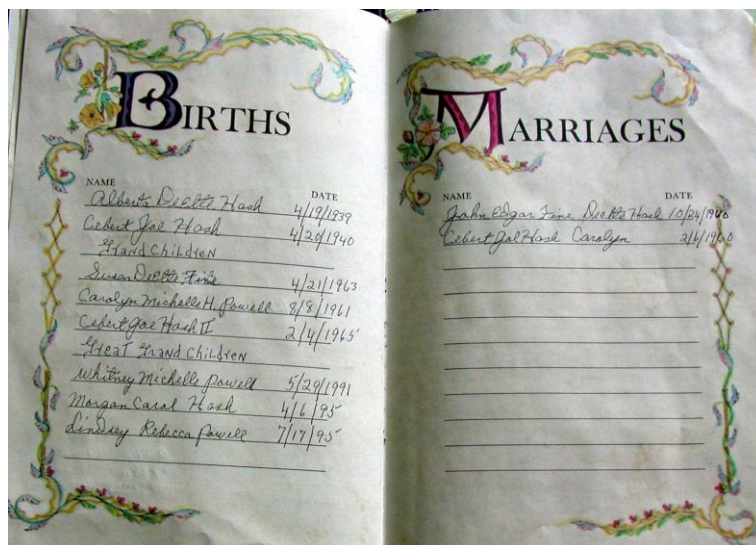 BIRTHS
NAME DATE
Alberta DeEtta Hash 4/19/1939
Cebert Joe Hash 4/20/1940
Grand Children
Susan DeEtta Fine 4/21/1963
Carolyn Michelle H. Powell 8/8/1961
Cebert Joe Hash II 2/4/1965
Great Grand Children
Whitney Michelle Powell 5/29/1991
Morgan Carol Hash 4/6/95
Lindsey Rebecca Powell 7/17/95
MARRIAGES
NAME DATE
John Edgar Fine DeEtta Hash 10/24/1960
Cebert Joe Hash Carolyn 2/6/1960